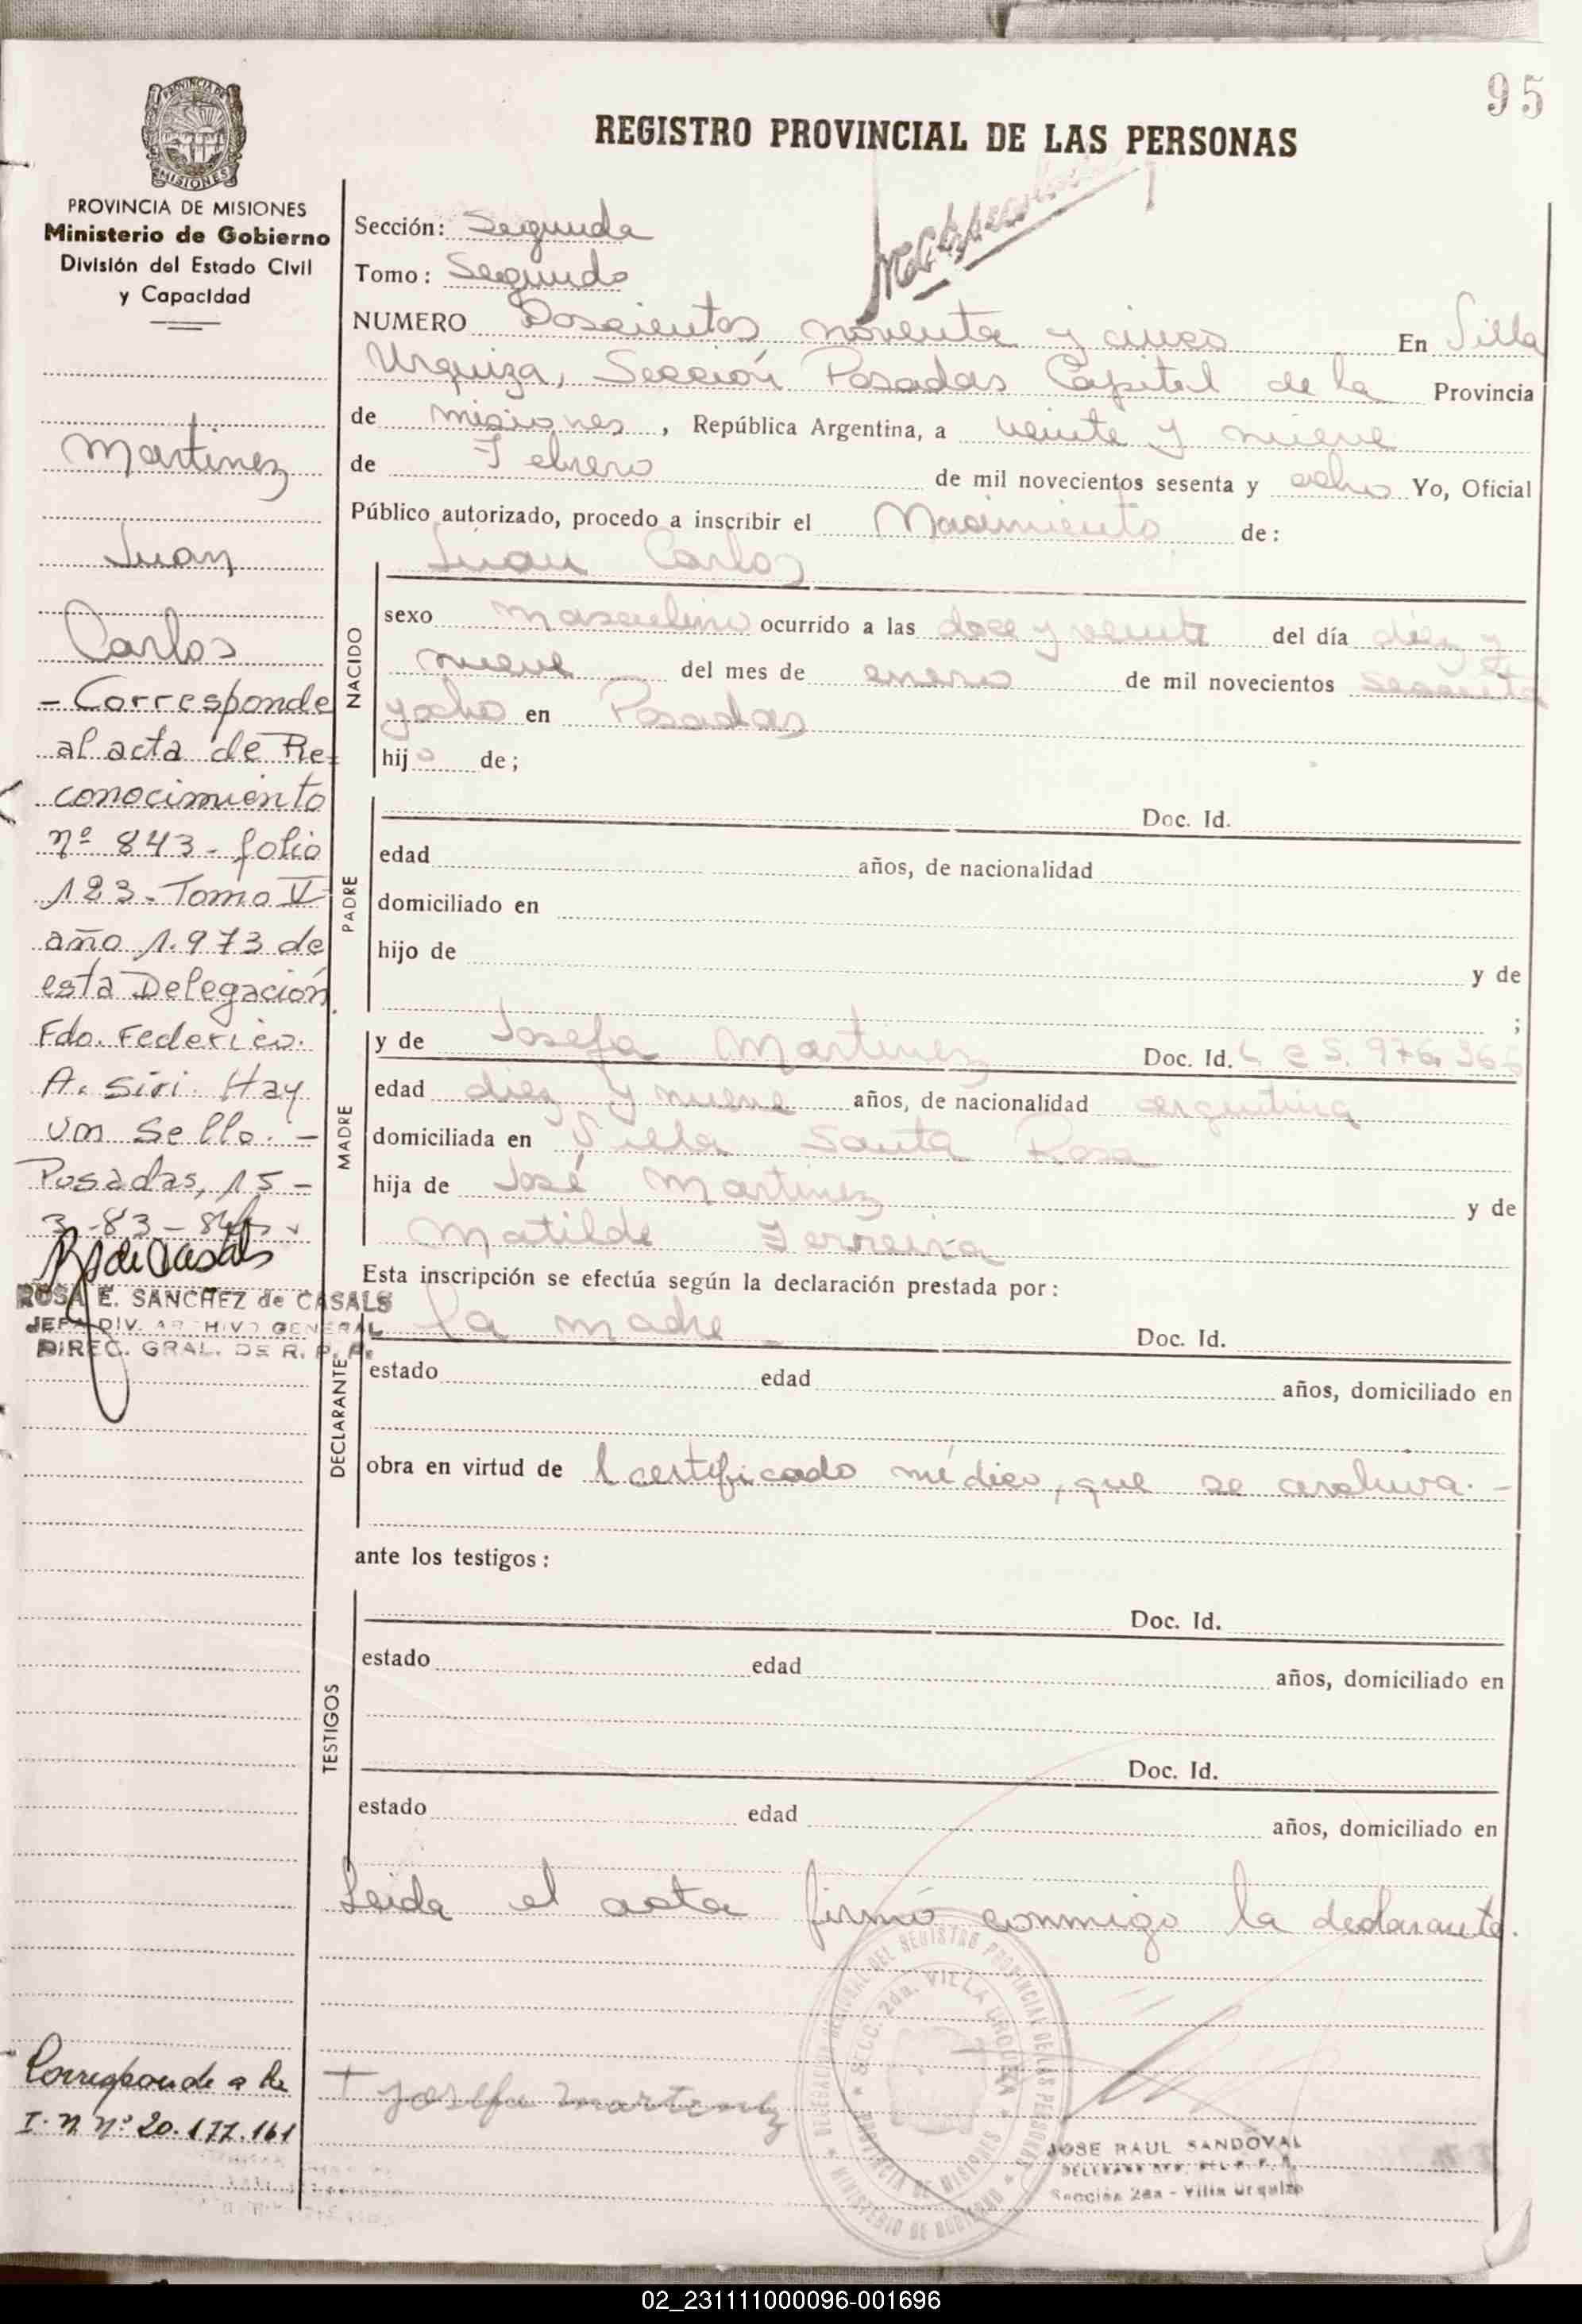 95
REGISTRO PROVINCIAL DE LAS PERSONAS
PROVINCIA DE MISIONES
Ministerio de Gobierno
División del Estado Civil
y Capacidad
Martinez
Juan
Carlos
- Corresponde
al acta de Re-
conocimiento
nº 843 - folio
123 - Tomo V
año 1.973 de
esta Delegación.
Fdo. Federico.
A. Siri. Hay
un Sello. -
Posadas, 15 -
3 - 83 -
ROSA E. SANCHEZ de CASALS
JEFA DIV. ARCHIVO GENERAL
DIREC. GRAL. DE R. P. P.
Corresponde a la
I. N Nº: 20.177.161
Sección: Segunda
Tomo: Segundo
NUMERO Doscientos noventa y cinco En Villa
Urquiza, Sección Posadas Capital de la Provincia
de Misiones, República Argentina, a veinte y nueve
de Febrero de mil novecientos sesenta y ocho Yo, Oficial
Público autorizado, procedo a inscribir el Nacimiento de:
Juan Carlos
NACIDO
sexo masculino ocurrido a las doce y veinte del día diez y
nueve del mes de enero de mil novecientos sesenta
y ocho en Posadas
hijo de;
PADRE
Doc. Id.
edad años, de nacionalidad
domiciliado en
hijo de y de
;
MADRE
y de Josefa Martinez Doc. Id. L C 5.976.366
edad diez y nueve años, de nacionalidad argentina
domiciliada en Villa Santa Rosa
hija de José Martinez y de
Matilde Ferreira
Esta inscripción se efectúa según la declaración prestada por:
DECLARANTE
la madre - Doc. Id.
estado edad años, domiciliado en
obra en virtud de l certificado médico, que se archiva. -
ante los testigos:
TESTIGOS
Doc. Id.
estado edad años, domiciliado en
Doc. Id.
estado edad años, domiciliado en
Leida el acta firmó conmigo la declarante.
+ Josefa Martinez
DELEGADO SECCIONAL DEL REGISTRO PROVINCIAL DE LAS PERSONAS
SECC. 2da. VILLA URQUIZA
PROVINCIA DE MISIONES
MINISTERIO DE GOBIERNO
JOSE RAUL SANDOVAL
Sección 2da - Villa Urquiza
02_231111000096-001696